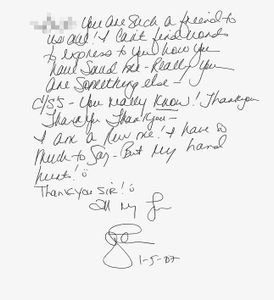 You are such a friend to
us all! I can't find words
to express to you how you
have saved me - Really you
are something else -
- You really know! Thankyou
Thankyou Thankyou -
I am a new me! I have so
much to say - But my hand
hurts!
Thankyou Sir!
All my
1-5-07